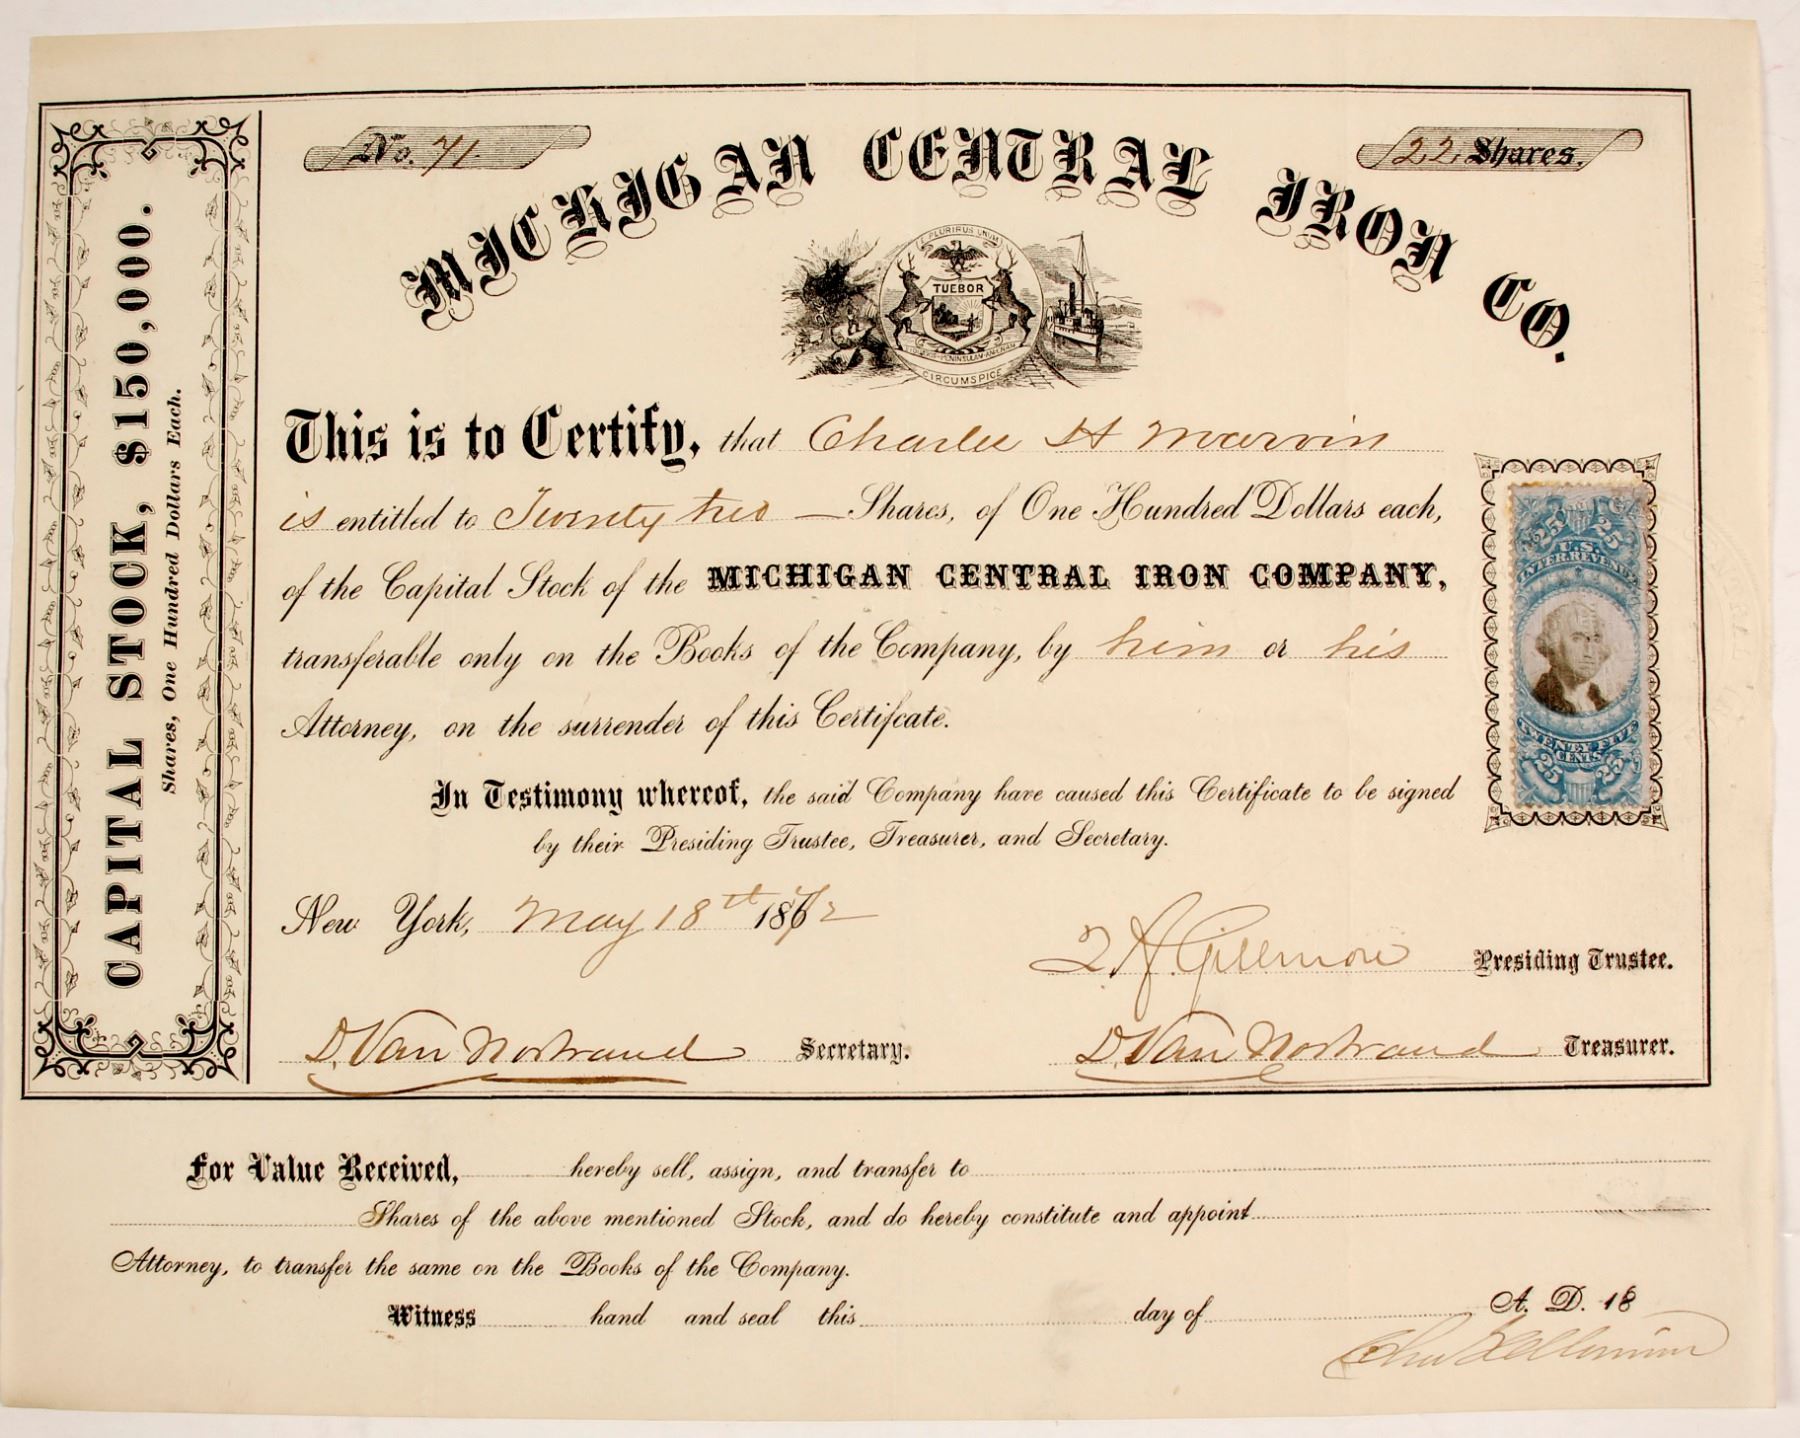 No. 71.
22 Shares.
MICHIGAN CENTRAL IRON CO.
E PLURIBUS UNUM
TUEBOR
CIRCUMSPICE
CAPITAL STOCK, $150,000.
Shares, One Hundred Dollars Each.
This is to Certify, that Charles H Marvin
is entitled to Twenty two — Shares, of One Hundred Dollars each,
of the Capital Stock of the MICHIGAN CENTRAL IRON COMPANY,
transferable only on the Books of the Company, by him or his
Attorney, on the surrender of this Certifcate.
25 25
U.S.
INTER. REVENUE
TWENTY FIVE
CENTS
25 25
In Testimony whereof, the said Company have caused this Certificate to be signed
by their Presiding Trustee, Treasurer, and Secretary.
New York, May 18th 1872
Q A Gillmore Presiding Trustee.
D. Van Nostrand Secretary. D. Van Nostrand Treasurer.
For Value Received, hereby sell, assign, and transfer to
Shares of the above mentioned Stock, and do hereby constitute and appoint
Attorney, to transfer the same on the Books of the Company.
Witness hand and seal this day of A. D. 18